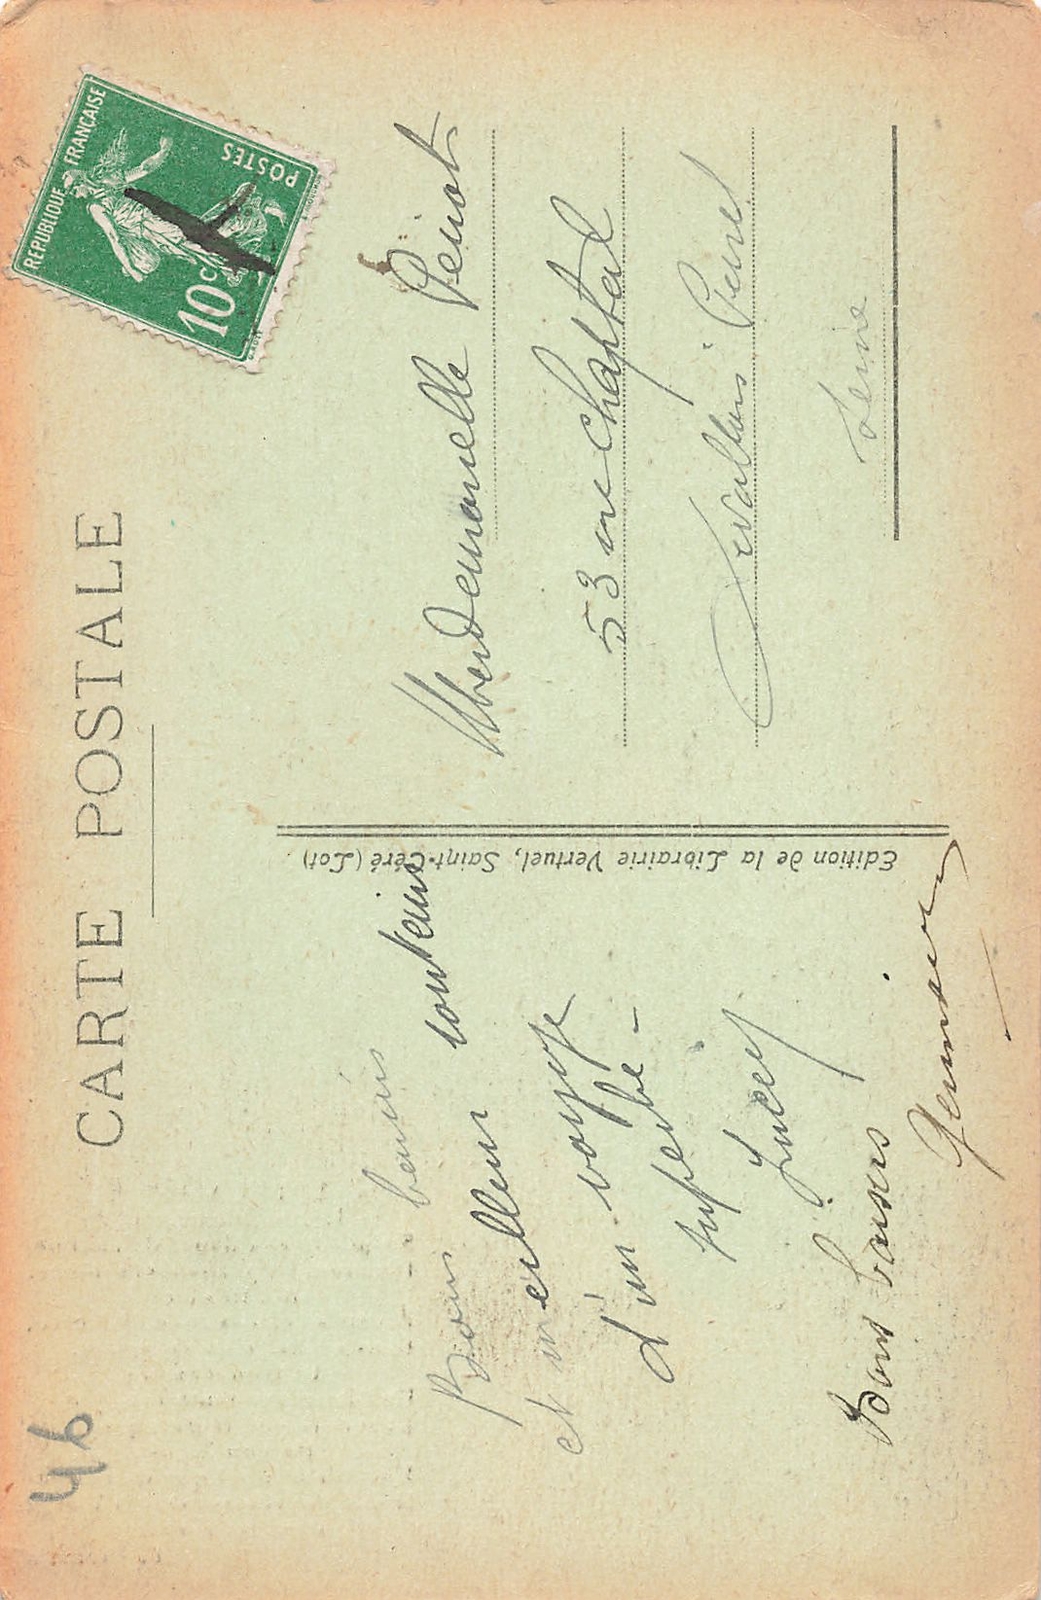 CARTE POSTALE
46
REPUBLIQUE FRANCAISE
POSTES
10c
Mademoiselle
53 rue Chaptal
Levallois-Perret
Seine
Edition de la Librairie Vertuel, Saint-Céré (Lot)
Bons baisers
et meilleur souvenir
d'un voyage
superbe -
Bons baisers